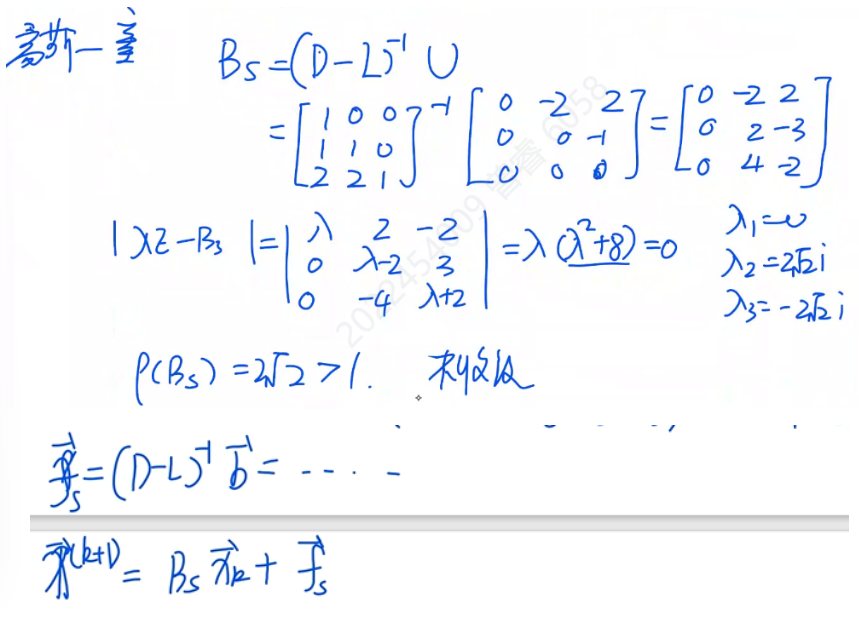 高斯一塞
B_S=(D-L)^{-1} U
=[1 0 0; 1 1 0; 2 2 1]^{-1} [0 -2 2; 0 0 -1; 0 0 0] = [0 -2 2; 0 2 -3; 0 4 -2]
|λE-B_S|=|λ 2 -2; 0 λ-2 3; 0 -4 λ+2| =λ(λ²+8)=0
λ₁=0
λ₂=2√2i
λ₃=-2√2i
ρ(B_S)=2√2>1. 不收敛
f⃗_S=(D-L)^{-1} b⃗=----
x⃗^{(k+1)}= B_S x⃗_k+ f⃗_S